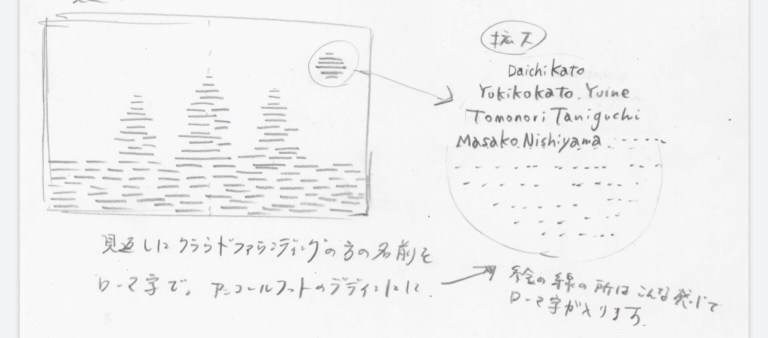 拡大
Daichi Kato
Yukiko Kato. Yuine
Tomonori Taniguchi
Masako Nishiyama
見返しにクラウドファンディングの方の名前を
ローマ字で。アンコールワットのデザインにに
絵の線の所はこんな感じで
ローマ字が入ります